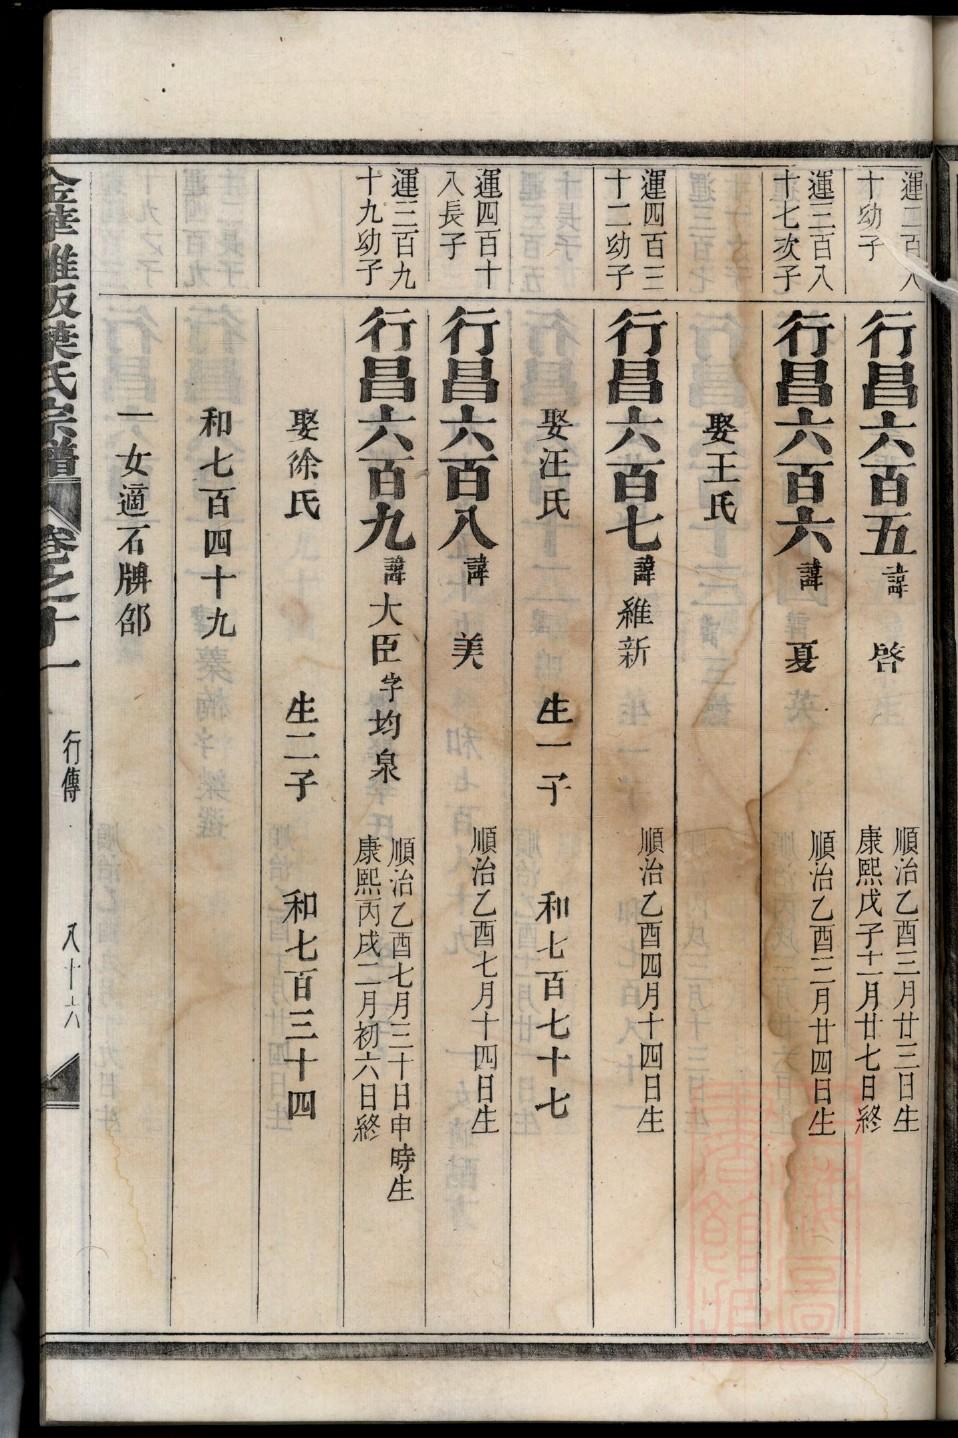 運二百八
十幼子
行昌六百五 諱 啓
順治乙酉三月廿三日生
康熙戊子十一月廿七日終
運三百八
十七次子
行昌六百六 諱 夏
順治乙酉三月廿四日生
娶王氏
運四百三
十二幼子
行昌六百七 諱 維新
順治乙酉四月十四日生
娶汪氏 生一子 和七百七十七
運四百十
八長子
行昌六百八 諱 美
順治乙酉七月十四日生
運三百九
十九幼子
行昌六百九 諱 大臣 字 均泉
順治乙酉七月三十日申時生
康熙丙戌二月初六日終
娶徐氏 生二子 和七百三十四
和七百四十九
一女適石牌郃
葉氏宗譜 卷之十一 行傳 八十六